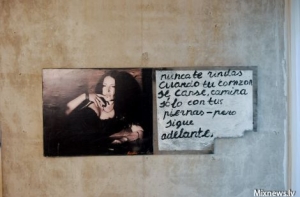 nunca te rindas
Cuando tu corazon
se canse, camina
solo con tus
piernas - pero
sigue
adelante.
Mixnews.lv